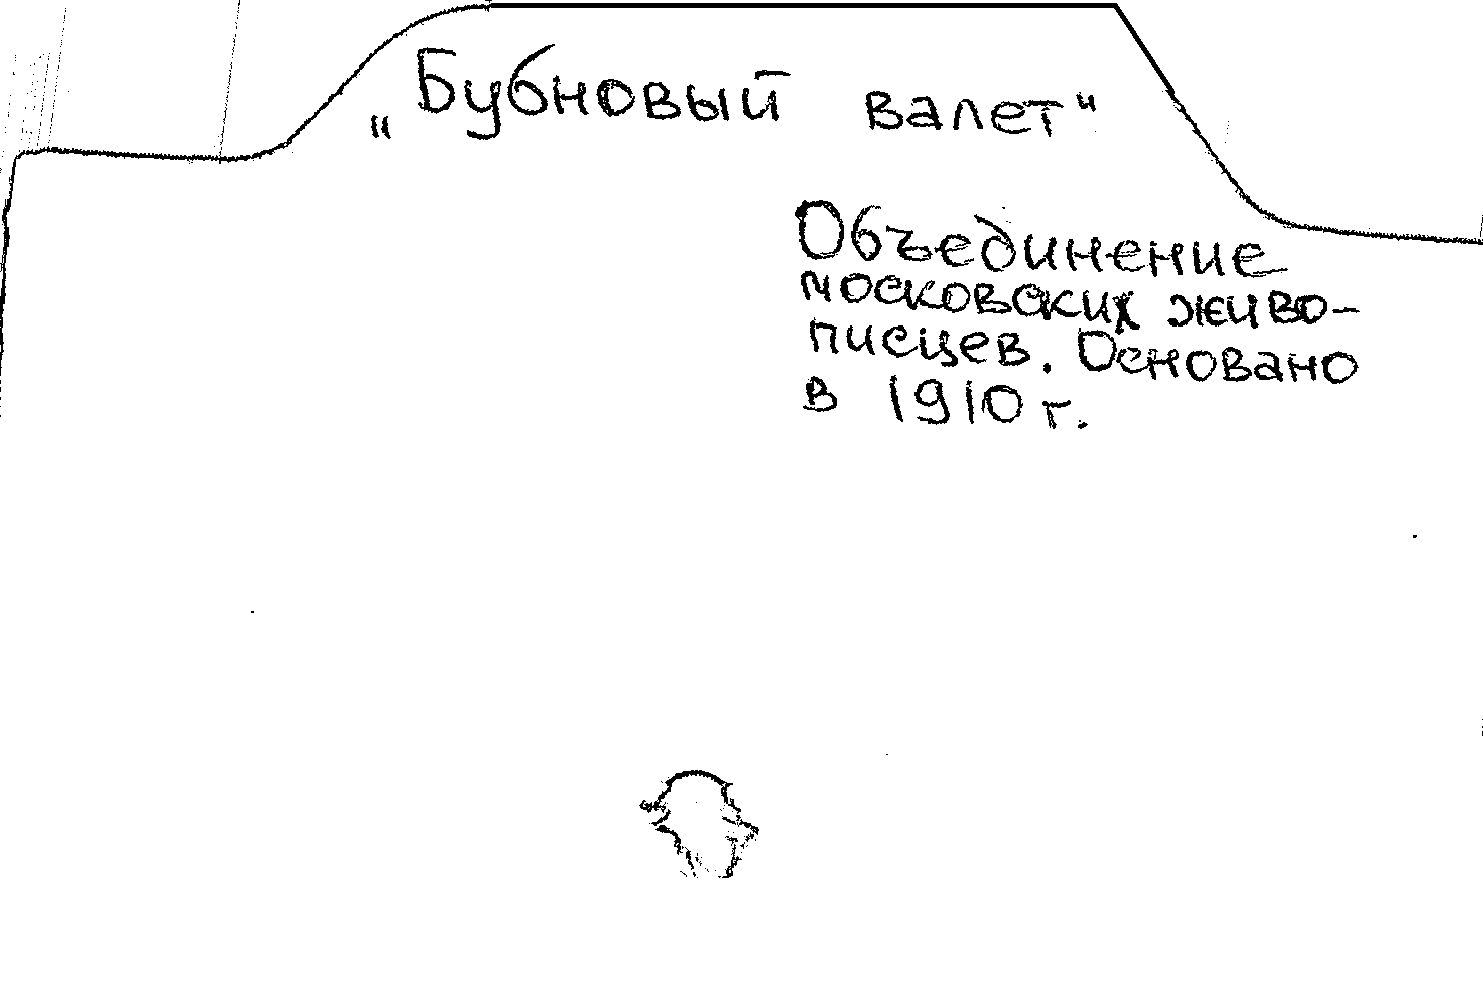 „Бубновый валет"
Объединение
московских живо-
писцев. Основано
в 1910 г.